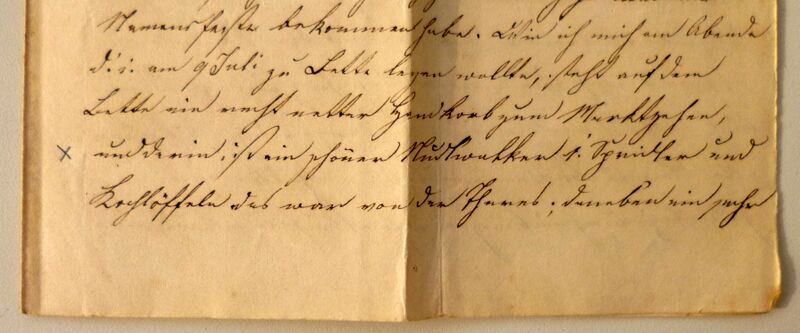 Namensfeste bekommen habe. Wie ich mich am Abende
d. i. am 9 Juli zu Bette legen wollte, steht auf dem
Bette ein recht netter Handkorb zum Marktgehen,
x und darin ist ein schöner Nudlwalker, Sprudler und
Kochlöffeln das war von der Theres; daneben ein sehr